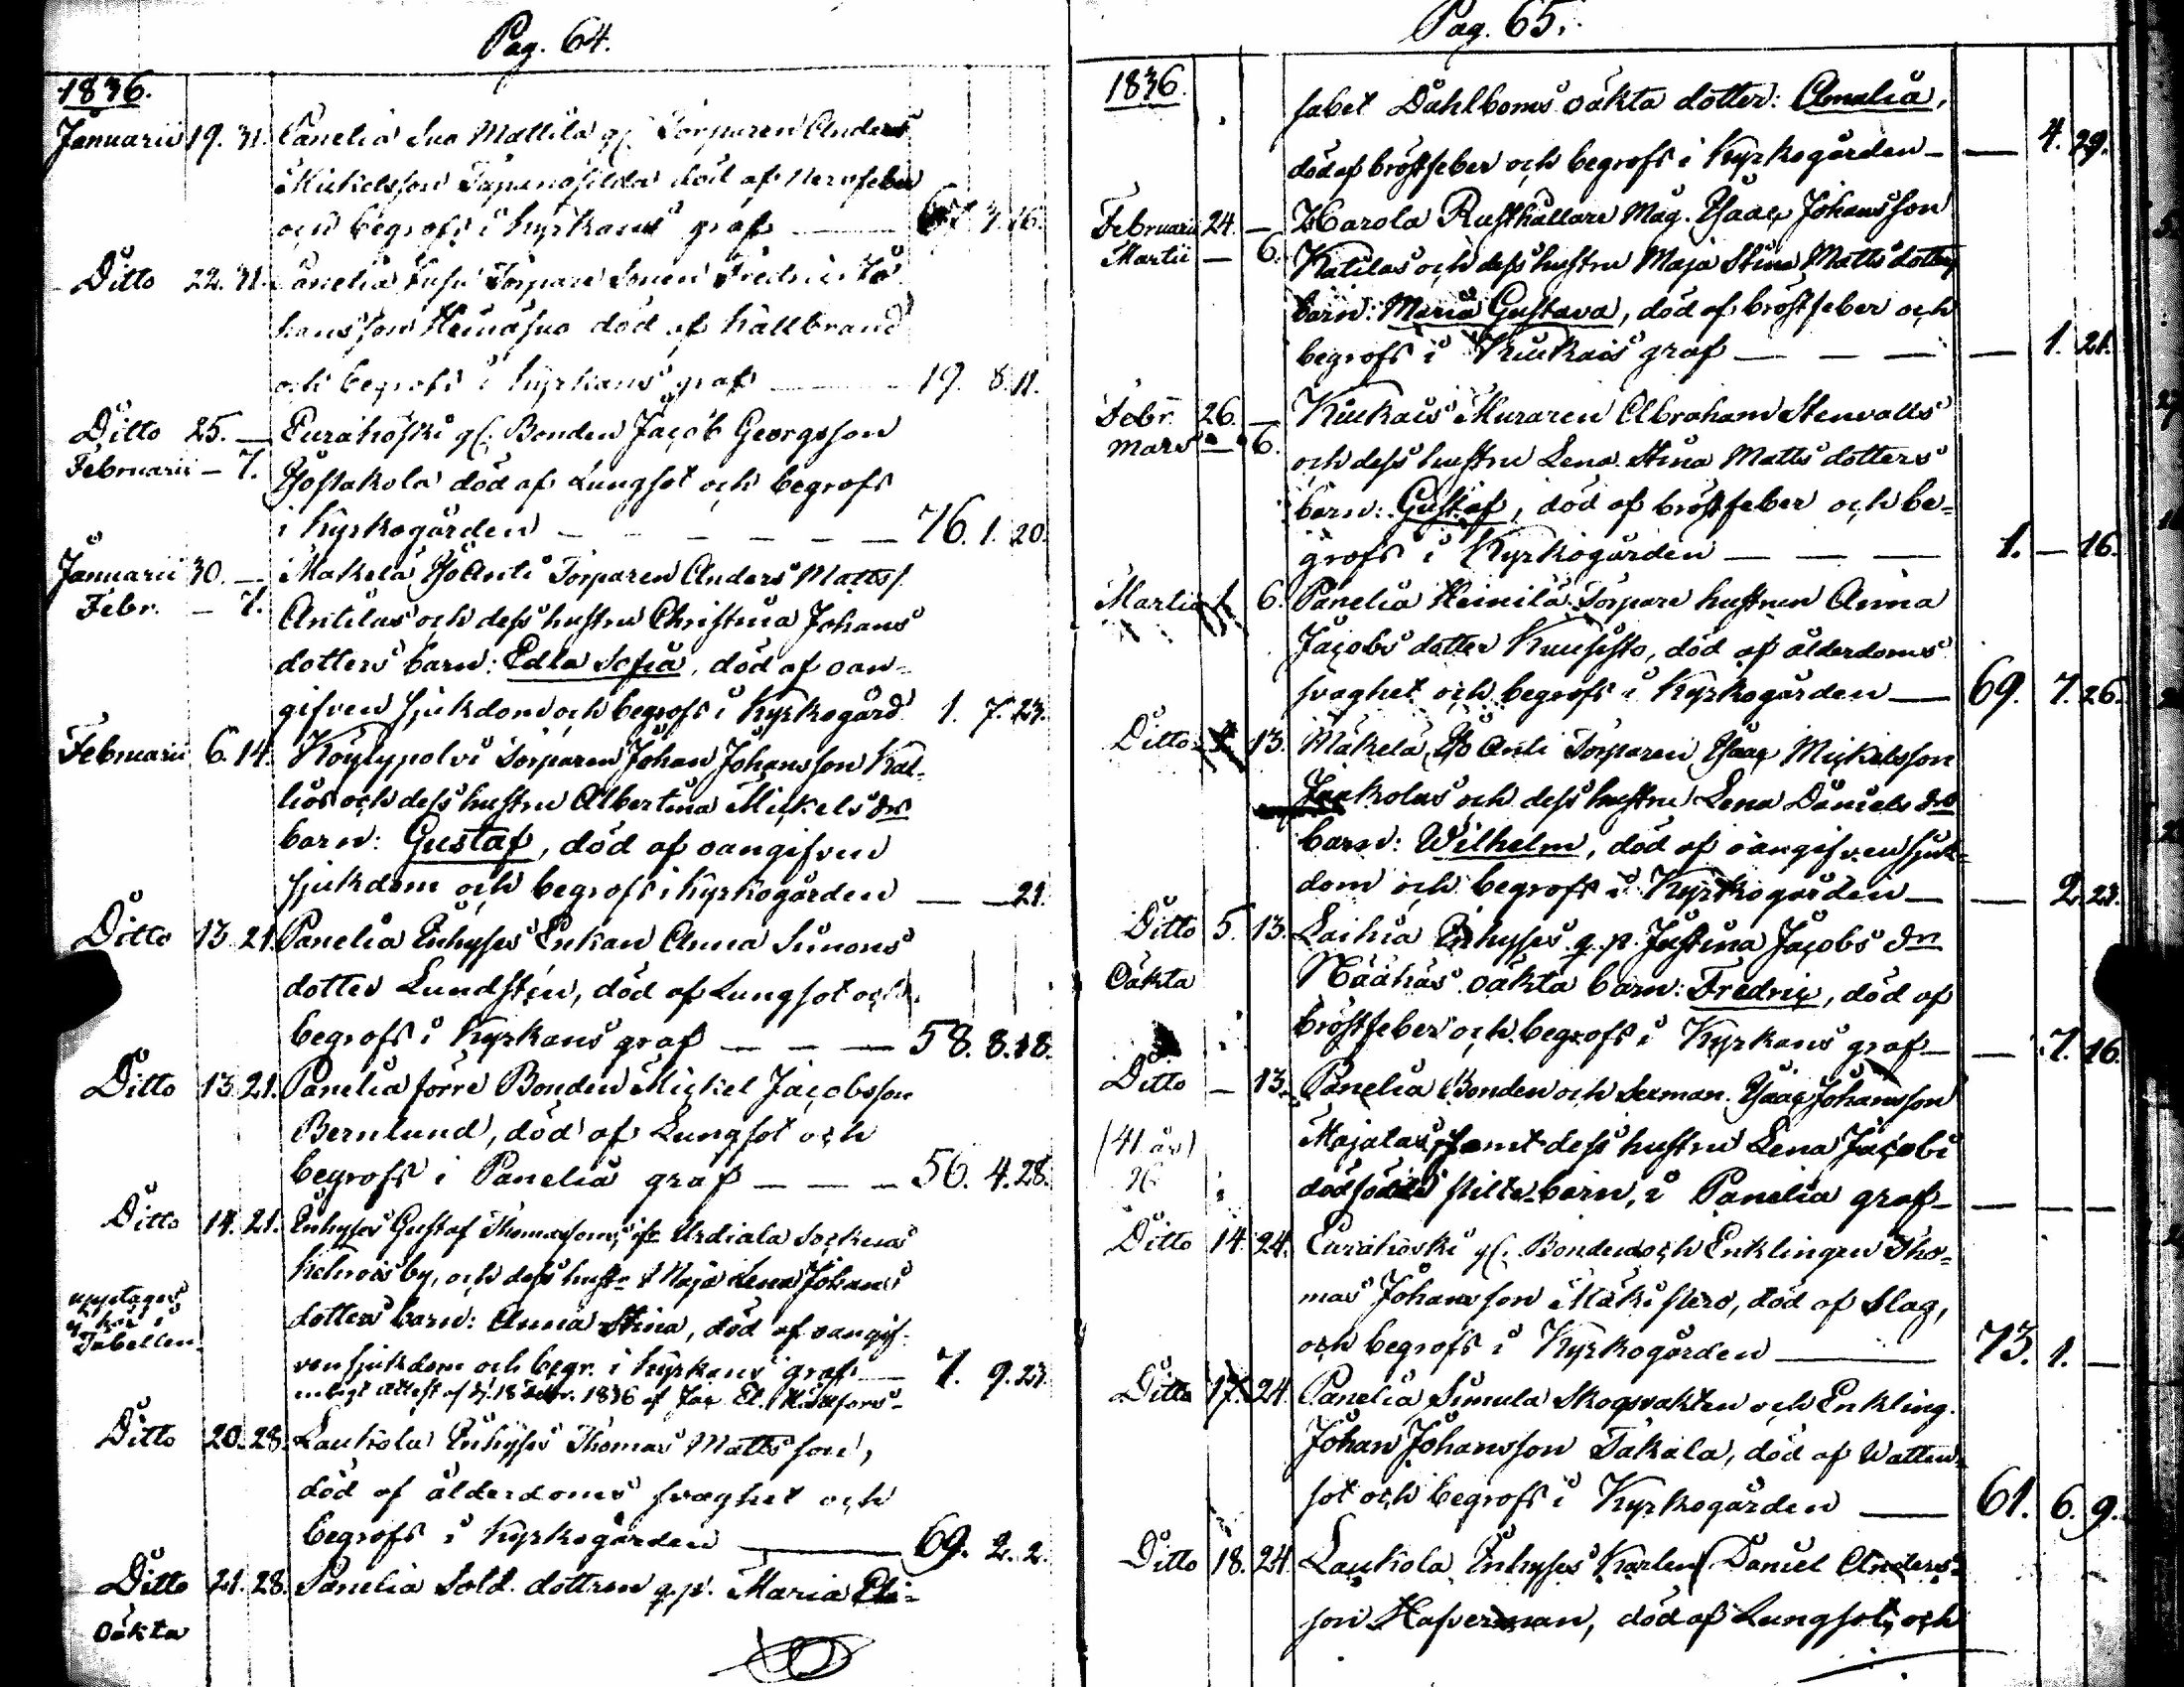 Pag. 64.
1836.
Januarii 19. 31. Panelia Sua Mattila gl. Torparen Anders
Mickelsson död af Nervfeber
och begrofs i Kyrkans graf — 3. 16.
Ditto 22. 31. Panelia Torpare Sonen Fredric Jo-
hansson död af kallbrand
och begrofs i Kyrkans graf — 19. 8. 11.
Ditto 25. — Eurakoski gl. Bonden Jacob Georgsson
Februarii — 7. död af Lungsot och begrofs
i Kyrkogården — — — — — 76. 1. 20.
Januarii 30. — Mäkelä Torparen Anders Matts s.
Febr. — 7. Antilas och dess hustru Christina Johans
dotters barn: Edla Sofia, död af oan-
gifven sjukdom och begrofs i Kyrkogård 1. 7. 23.
Februarii 6. 14. Köylypolvi Torparen Johan Johansson Kal-
lios och dess hustru Albertina Mickels drs
barn: Gustaf, död af oangifven
sjukdom och begrofs i Kyrkogården — — 21.
Ditto 13. 21. Panelia Enkan Anna Simons
dotter Lundsten, död af Lungsot och
begrofs i Kyrkans graf — — — 58. 8. 18.
Ditto 13. 21. Panelia förre Bonden Mickel Jacobsson
Bernlund, död af Lungsot och
begrofs i Panelia graf — — — 56. 4. 28.
Ditto 14. 21. Inhyses Gustaf Thomassons, ifr. Urdiala Socknas
by, och dess hustr. Maja Lena Johans
upptages
ej här i
Tabellen.
dotters barn: Anna Stina, död af oangif-
ven sjukdom och begr. i Kyrkans graf — 7. 9. 23.
enligt attest af d. 18 1836 af
Ditto 20. 28. Laukola Inhyses Thomas Mattsson,
död af ålderdoms svaghet och
begrofs i Kyrkogården — 69. 2. 2.
Ditto 21. 28. Panelia Sold. dottren q.p. Maria Eli-
Oäkta
Pag. 65.
1836.
sabet Dahlboms oäkta dotter: Amalia,
död af bröstfeber och begrofs i Kyrkogården — — 4. 29.
Februarii 24. — Harola Rusthållare Måg. Isaac Johansson
Martii — 6. Katilas och dess hustru Maja Stina Matts dotters
barn: Maria Gustava, död af bröstfeber och
begrofs i Kiukais graf — — — — 1. 21.
Febr. 26. — Kiukais Muraren Abraham Stenvalls
Mars — 6. och dess hustru Lena Stina Matts dotters
barn: Gustaf, död af bröstfeber och be-
grofs i Kyrkogården — — — 1. — 16.
Martii 1. 6. Panelia Heinilä Torpare hustrun Anna
Jacobs dotter Kuusisto, död af ålderdoms
svaghet och begrofs i Kyrkogården — 69. 7. 26.
Ditto 13. Mäkelä Torparen Isaac Mickelsson
Jaakolas och dess hustru Lena Daniels drs
barn: Wilhelm, död af oangifven sjuk-
dom och begrofs i Kyrkogården — — 2. 23.
Ditto 5. 13. Laihia Inhyses q. p. Justina Jacobs drs
Oäkta oäkta barn: Fredric, död af
bröstfeber och begrofs i Kyrkans graf — — 7. 16.
Ditto — 13. Panelia Bonden och Sexman. Isaac Johansson
(41 år) Majalas, samt dess hustru Lena Jacobs
dödfödda barn, i Panelia graf — — — —
Ditto 14. 24. Eurakoski gl. Bonden och Enklingen Tho-
mas Johansson död af Slag,
och begrofs i Kyrkogården — 73. 1. —
Ditto 17. 24. Panelia Simula Skogvakten och Enkling.
Johan Johansson Takala, död af Watten-
sot och begrofs i Kyrkogården — 61. 6. 9.
Ditto 18. 24. Laukola Inhyses Karlen Daniel Anders-
son Hafverman, död af Lungsot, och